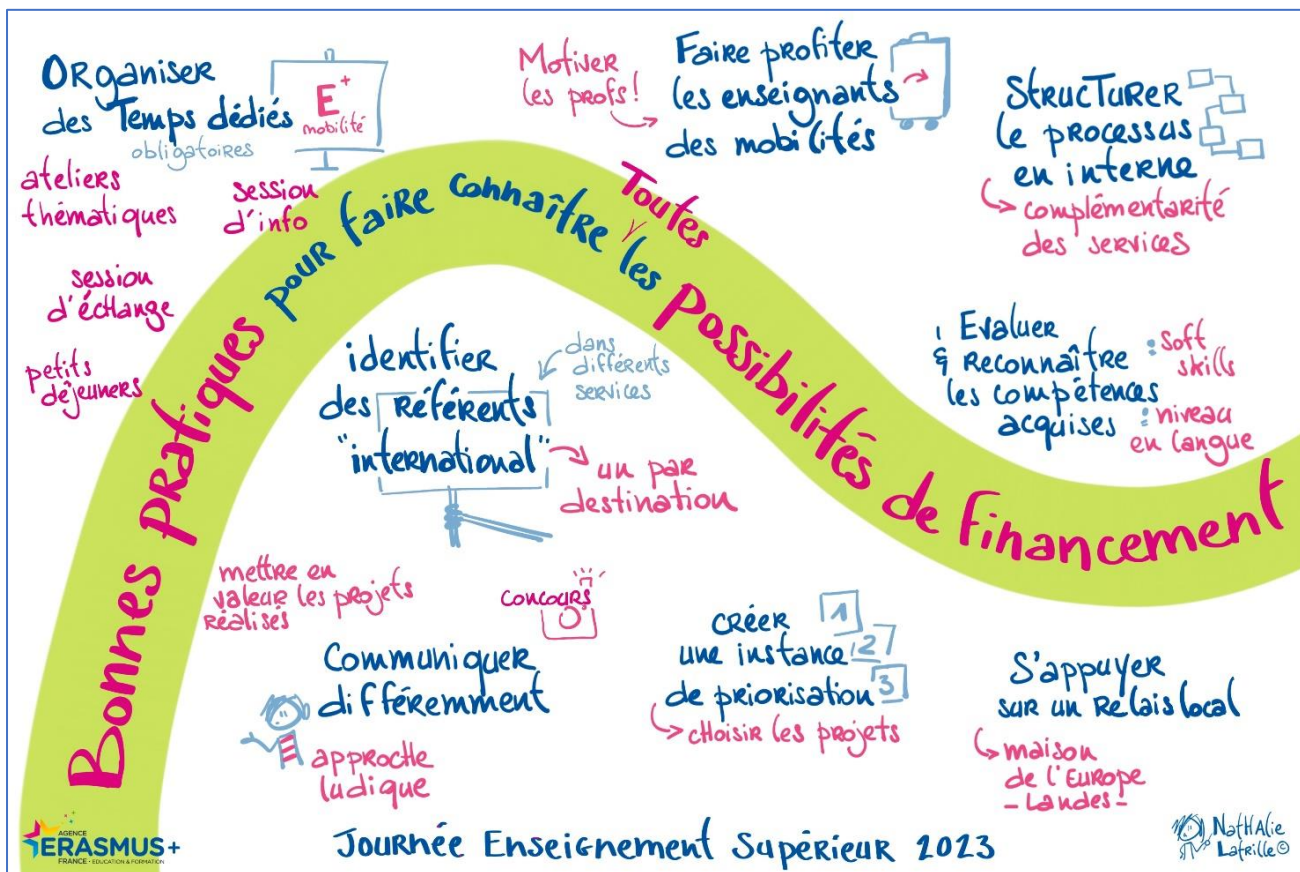 Bonnes pratiques pour faire connaître Toutes les possibilités de financement
ORganiser
des Temps dédiés
obligatoires
E+
mobilité
ateliers
thématiques
session
d'info
session
d'échange
petits
déjeuners
Motiver
les profs!
Faire profiter
les enseignants
des mobilités
STRUCTURER
le processus
en interne
complémentarité
des services
identifier
des Référents
"international"
dans
différents
services
un par
destination
Evaluer
& Reconnaître
les compétences
acquises
: Soft
skills
: niveau
en langue
mettre en
valeur les projets
réalisés
concours
Communiquer
différemment
approche
ludique
CRÉER
une instance
de priorisation
1
2
3
choisir les projets
S'appuyer
sur un Relais local
maison
de l'Europe
- Landes -
AGENCE
ERASMUS+
FRANCE - EDUCATION & FORMATION
Journée Enseignement Supérieur 2023
Nathalie
Latrille©